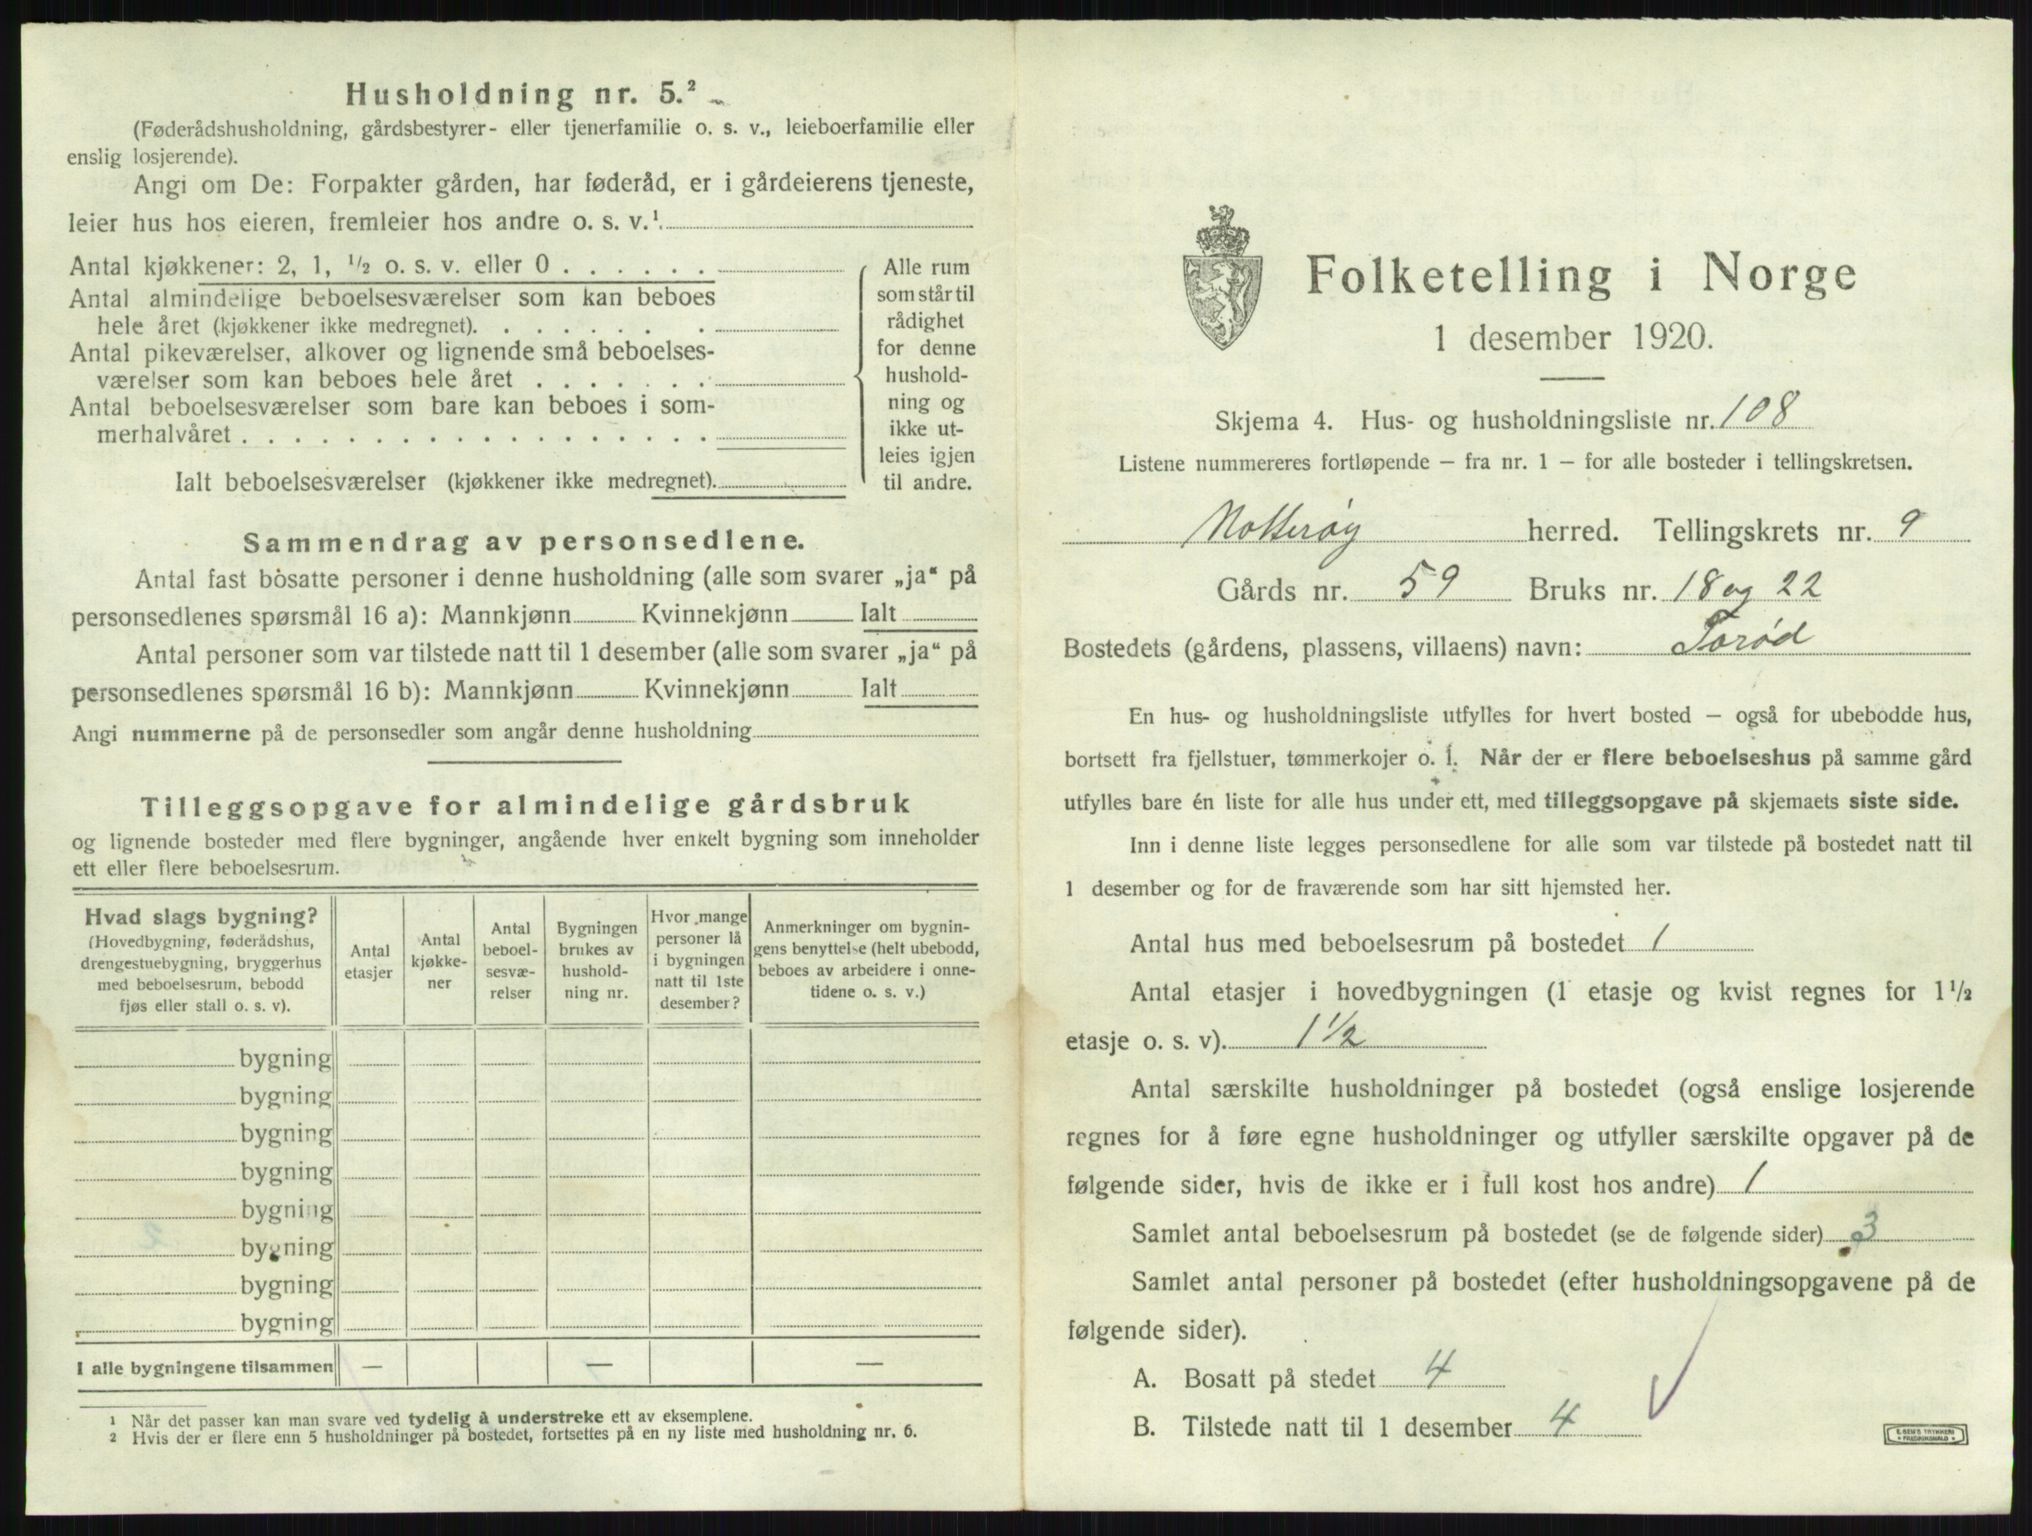 Husholdning nr. 5.²
(Føderådshusholdning, gårdsbestyrer- eller tjenerfamilie o. s. v., leieboerfamilie eller
enslig losjerende).
Angi om De: Forpakter gården, har føderåd, er i gårdeierens tjeneste,
leier hus hos eieren, fremleier hos andre o. s. v.¹
Antal kjøkkener: 2, 1, ½ o. s. v. eller 0 . . . . . .
Antal almindelige beboelsesværelser som kan beboes
hele året (kjøkkener ikke medregnet). . . . . . . .
Antal pikeværelser, alkover og lignende små beboelses-
værelser som kan beboes hele året . . . . . . .
Antal beboelsesværelser som bare kan beboes i som-
merhalvåret . . . . . . . . . . . . . . . . . .
Ialt beboelsesværelser (kjøkkener ikke medregnet).
Alle rum
som står til
rådighet
for denne
hushold-
ning og
ikke ut-
leies igjen
til andre.
Sammendrag av personsedlene.
Antal fast bosatte personer i denne husholdning (alle som svarer „ja“ på
personsedlenes spørsmål 16 a): Mannkjønn Kvinnekjønn Ialt
Antal personer som var tilstede natt til 1 desember (alle som svarer „ja“ på
personsedlenes spørsmål 16 b): Mannkjønn Kvinnekjønn Ialt
Angi nummerne på de personsedler som angår denne husholdning
Tilleggsopgave for almindelige gårdsbruk
og lignende bosteder med flere bygninger, angående hver enkelt bygning som inneholder
ett eller flere beboelsesrum.
Hvad slags bygning?
(Hovedbygning, føderådshus,
drengestuebygning, bryggerhus
med beboelsesrum, bebodd
fjøs eller stall o. s. v).
Antal
etasjer
Antal
kjøkke-
ner
Antal
beboel-
sesvæ-
relser
Bygningen
brukes av
hushold-
ning nr.
Hvor mange
personer lå
i bygningen
natt til 1ste
desember?
Anmerkninger om bygnin-
gens benyttelse (helt ubebodd,
beboes av arbeidere i onne-
tidene o. s. v.)
bygning
bygning
bygning
bygning
bygning
bygning
bygning
bygning
I alle bygningene tilsammen — — —
¹ Når det passer kan man svare ved tydelig å understreke ett av eksemplene.
² Hvis der er flere enn 5 husholdninger på bostedet, fortsettes på en ny liste med husholdning nr. 6.
Folketelling i Norge
1 desember 1920.
Skjema 4. Hus- og husholdningsliste nr. 108
Listene nummereres fortløpende — fra nr. 1 — for alle bosteder i tellingskretsen.
Nøtterøy herred. Tellingskrets nr. 9
Gårds nr. 59 Bruks nr. 18 og 22
Bostedets (gårdens, plassens, villaens) navn: Torød
En hus- og husholdningsliste utfylles for hvert bosted — også for ubebodde hus,
bortsett fra fjellstuer, tømmerkojer o. l. Når der er flere beboelseshus på samme gård
utfylles bare én liste for alle hus under ett, med tilleggsopgave på skjemaets siste side.
Inn i denne liste legges personsedlene for alle som var tilstede på bostedet natt til
1 desember og for de fraværende som har sitt hjemsted her.
Antal hus med beboelsesrum på bostedet 1
Antal etasjer i hovedbygningen (1 etasje og kvist regnes for 1½
etasje o. s. v). 1½
Antal særskilte husholdninger på bostedet (også enslige losjerende
regnes for å føre egne husholdninger og utfyller særskilte opgaver på de
følgende sider, hvis de ikke er i full kost hos andre) 1
Samlet antal beboelsesrum på bostedet (se de følgende sider) 3
Samlet antal personer på bostedet (efter husholdningsopgavene på de
følgende sider).
A. Bosatt på stedet 4
B. Tilstede natt til 1 desember 4